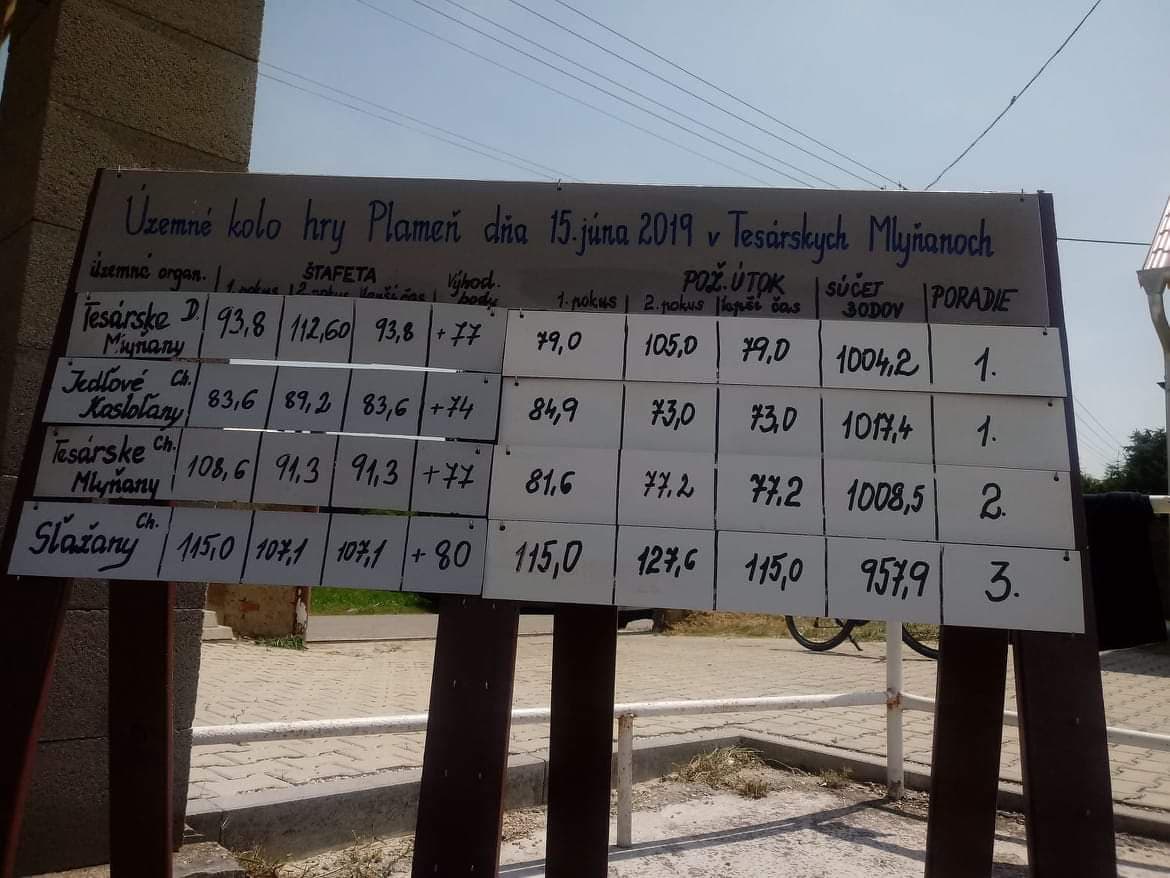 Územné kolo hry Plameň dňa 15. júna 2019 v Tesárskych Mlyňanoch
Územná organ. ŠTAFETA Výhod. body POŽ. ÚTOK SÚČET BODOV PORADIE
1. pokus 2. pokus lepší čas 1. pokus 2. pokus lepší čas
Tesárske Mlyňany D. 93,8 112,60 93,8 +77 79,0 105,0 79,0 1004,2 1.
Jedľové Kostoľany Ch. 83,6 89,2 83,6 +74 84,9 73,0 73,0 1017,4 1.
Tesárske Mlyňany Ch. 108,6 91,3 91,3 +77 81,6 77,2 77,2 1008,5 2.
Sľažany Ch. 115,0 107,1 107,1 +80 115,0 127,6 115,0 957,9 3.